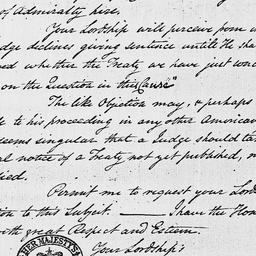 of Admiralty here.
Your Lordship will perceive from
dge declines giving sentence until He sha
ed whether the Treaty we have just conc
on the Question in this Cause"
The like Objection may, & perhaps
to his proceeding in any other American
eems singular that a Judge should ta
al notice of a Treaty not yet published, n
ied.
Permit me to request your Lord
ion to this Subject. — I have the Hon
with great Respect and Esteem
Your Lordship's
HER MAJESTY'S